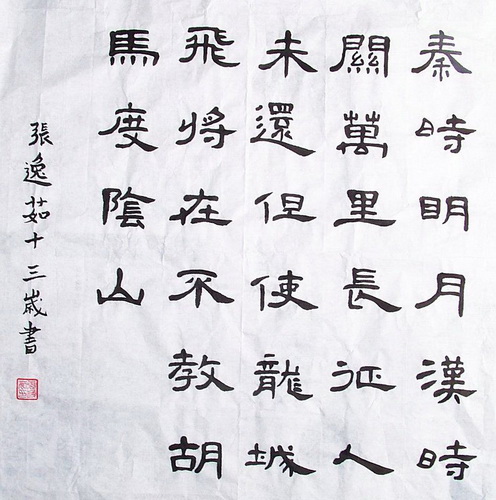 秦時明月漢時
關萬里長征人
未還但使龍城
飛将在不教胡
馬度陰山
張逸茹十三歲書